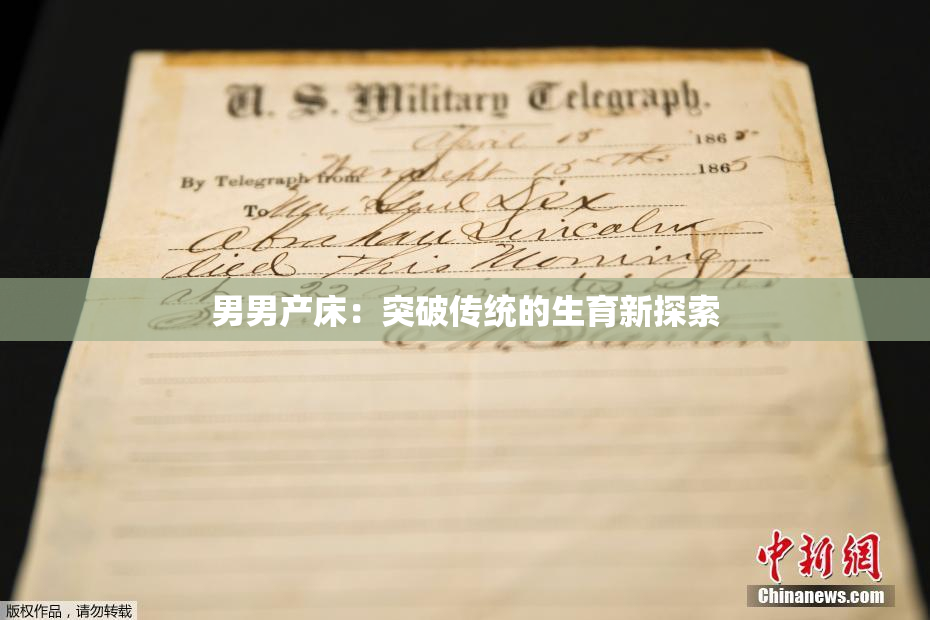 U. S. Military Telegraph.
April 15 1865
By Telegraph from War Dept 15th 1865
To Maj Genl Dix
Abraham Lincoln
died This Morning
at 22 minutes after
男男产床：突破传统的生育新探索
中新网
Chinanews.com
版权作品，请勿转载